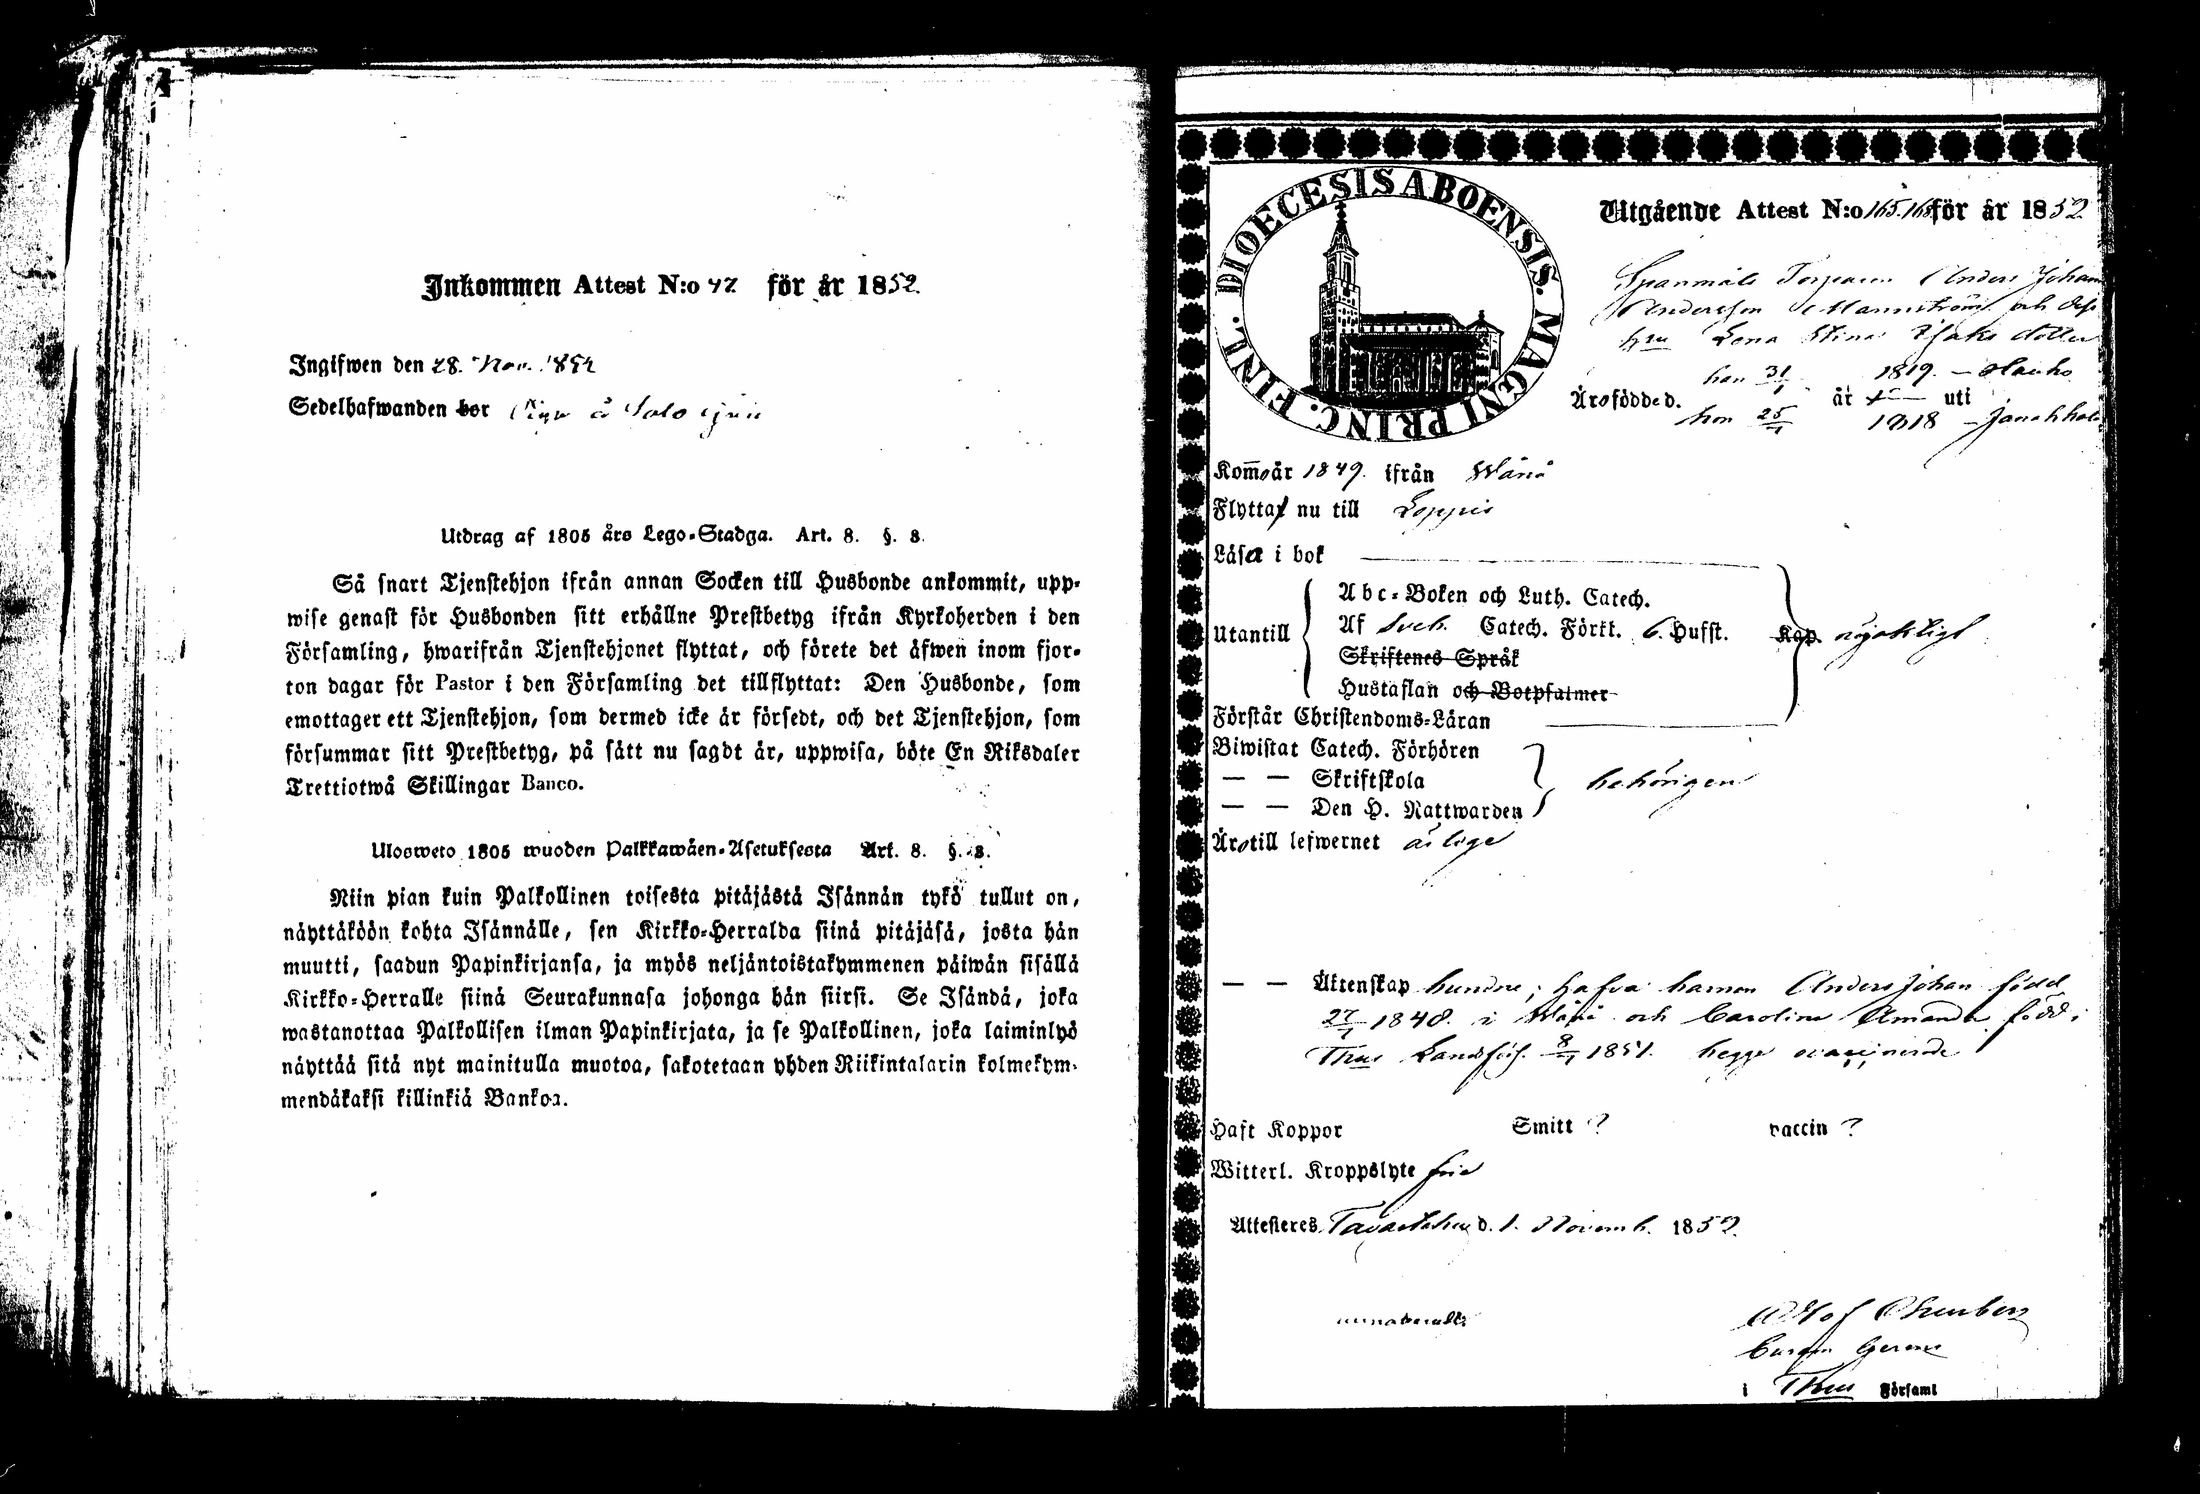 Inkommen Attest N:o 42 för år 1852.
Ingifwen den 28. Nov. 1852
Sedelhafwanden bor å Salo
Utdrag af 1805 års Lego-Stadga. Art. 8. §. 8.
Så snart Tjenstehjon ifrån annan Socken till Husbonde ankommit, upp-
wise genast för Husbonden sitt erhållne Prestbetyg ifrån Kyrkoherden i den
Församling, hwarifrån Tjenstehjonet flyttat, och förete det äfwen inom fjor-
ton dagar för Pastor i den Församling det tillflyttat: Den Husbonde, som
emottager ett Tjenstehjon, som dermed icke är försedt, och det Tjenstehjon, som
försummar sitt Prestbetyg, på sätt nu sagdt är, uppwisa, böte En Riksdaler
Trettiotwå Skillingar Banco.
Ulosweto 1805 wuoden Palkkawäen-Asetuksesta Art. 8. §. 8.
Niin pian kuin Palkollinen toisesta pitäjästä Isännän tykö tullut on,
näyttäköön kohta Isännälle, sen Kirkko-Herralda siinä pitäjäsä, josta hän
muutti, saadun Papinkirjansa, ja myös neljäntoistakymmenen päiwän sisällä
Kirkko-Herralle siinä Seurakunnasa johonga hän siirsi. Se Isändä, joka
wastanottaa Palkollisen ilman Papinkirjata, ja se Palkollinen, joka laiminlyö
näyttää sitä nyt mainitulla muotoa, sakotetaan yhden Riikintalarin kolmekym-
mendäkaksi killinkiä Bankoa.
DIOECESIS ABOENSIS. MAGNI PRINC. FINL.
Utgående Attest N:o 165. för år 1852.
Spanmåls Torparen Anders Johan
Andersson Mannström och dess
hru Lena Stina Isaks dotter
han 31/1 1819. – Hauho
Äro födde d. år uti
hon 25/1 1818 – Janakkala
Kom år 1849. ifrån Wånå
Flytta nu till Loppis
Läsa i bok
Utantill
Abc-Boken och Luth. Catech.
Af Sveb. Catech. Förkl. 6. Hufst. Kap. nöjaktigt
Skriftenes Språk
Hustaflan och Botpsalmer
Förstår Christendoms-Läran
Biwistat Catech. Förhören
— — Skriftskola behörigen
— — Den H. Nattwarden
Äro till lefwernet ärlige
— — Äktenskap bundne; hafva barnen Anders Johan född
27/1 1848. i Wånå och Carolina Amanda född i
Thus Landsförs. 8/1 1851. begge vaccinerade
Haft Koppor Smitt ? vaccin ?
Witterl. Kroppslyte frie
Attesteres Tavastehus d. 1. Novemb. 1852.
i Thus Församl